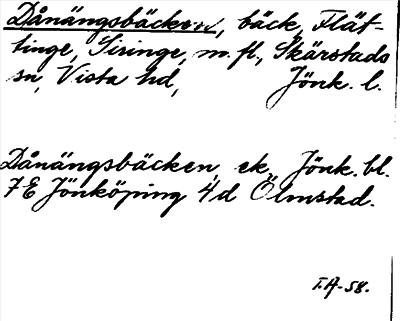 Dånängsbäcken, bäck, Flät-
tinge, Siringe, m.fl., Skärstads
sn, Vista hd, Jönk. l.
Dånängsbäcken, ek. Jönk. bl.
7E Jönköping 4d Ölmstad.
T.A-58.